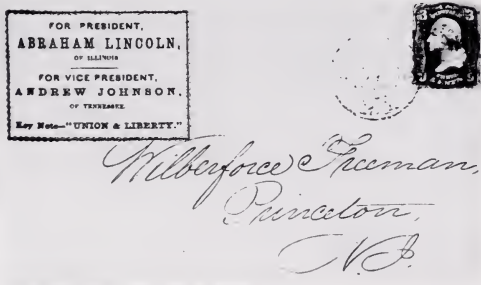 FOR PRESIDENT,
ABRAHAM LINCOLN,
OF ILLINOIS
FOR VICE PRESIDENT,
ANDREW JOHNSON,
OF TENNESSEE.
Key Note—"UNION & LIBERTY."
3 3
Wilberforce Freeman,
Princeton,
N.J.